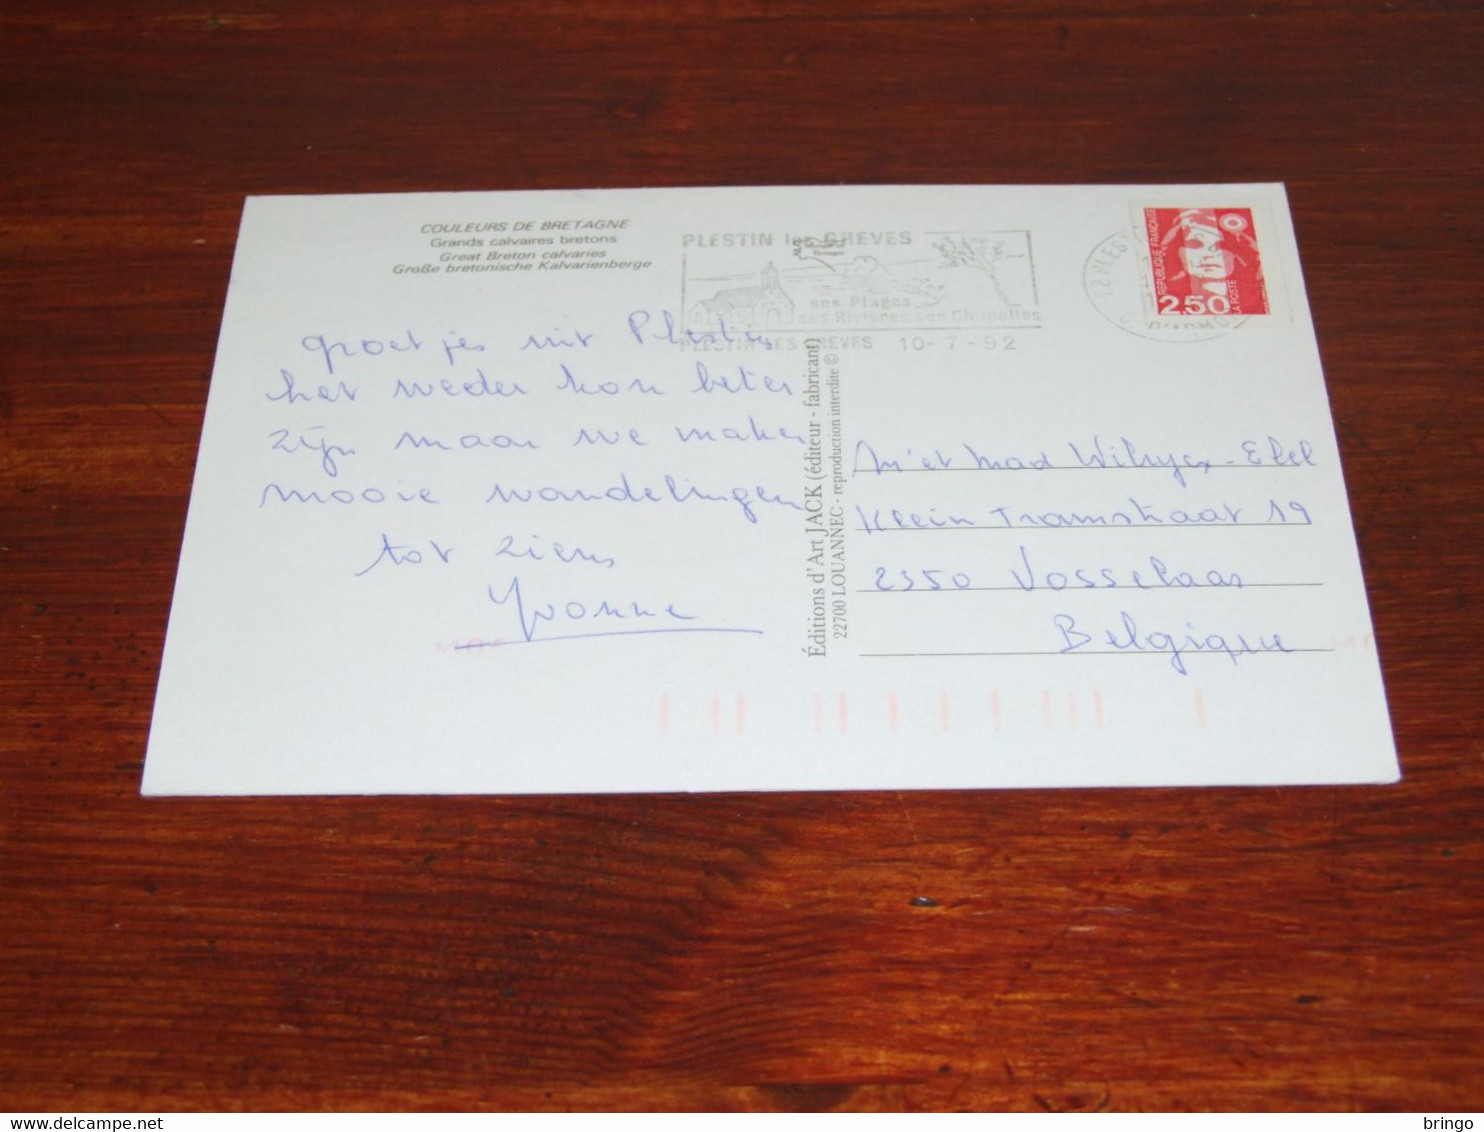 COULEURS DE BRETAGNE
Grands calvaires bretons
Great Breton calvaries
Große bretonische Kalvarienberge
PLESTIN les GREVES
ses Plages
ses Rivières, ses Chapelles
PLESTIN LES GREVES 10-7-92
RÉPUBLIQUE FRANÇAISE
2,50
LA POSTE
groetjes uit Plestin
het weder kon beter
zijn maar we maken
mooie wandelingen
tot ziens
Yvonne
Éditions d'Art JACK (éditeur - fabricant)
22700 LOUANNEC - reproduction interdite ©
M' et Mad Wilrycx - Elel
Klein Tramstraat 19
2350 Vosselaar
Belgique
delcampe.net
bringo